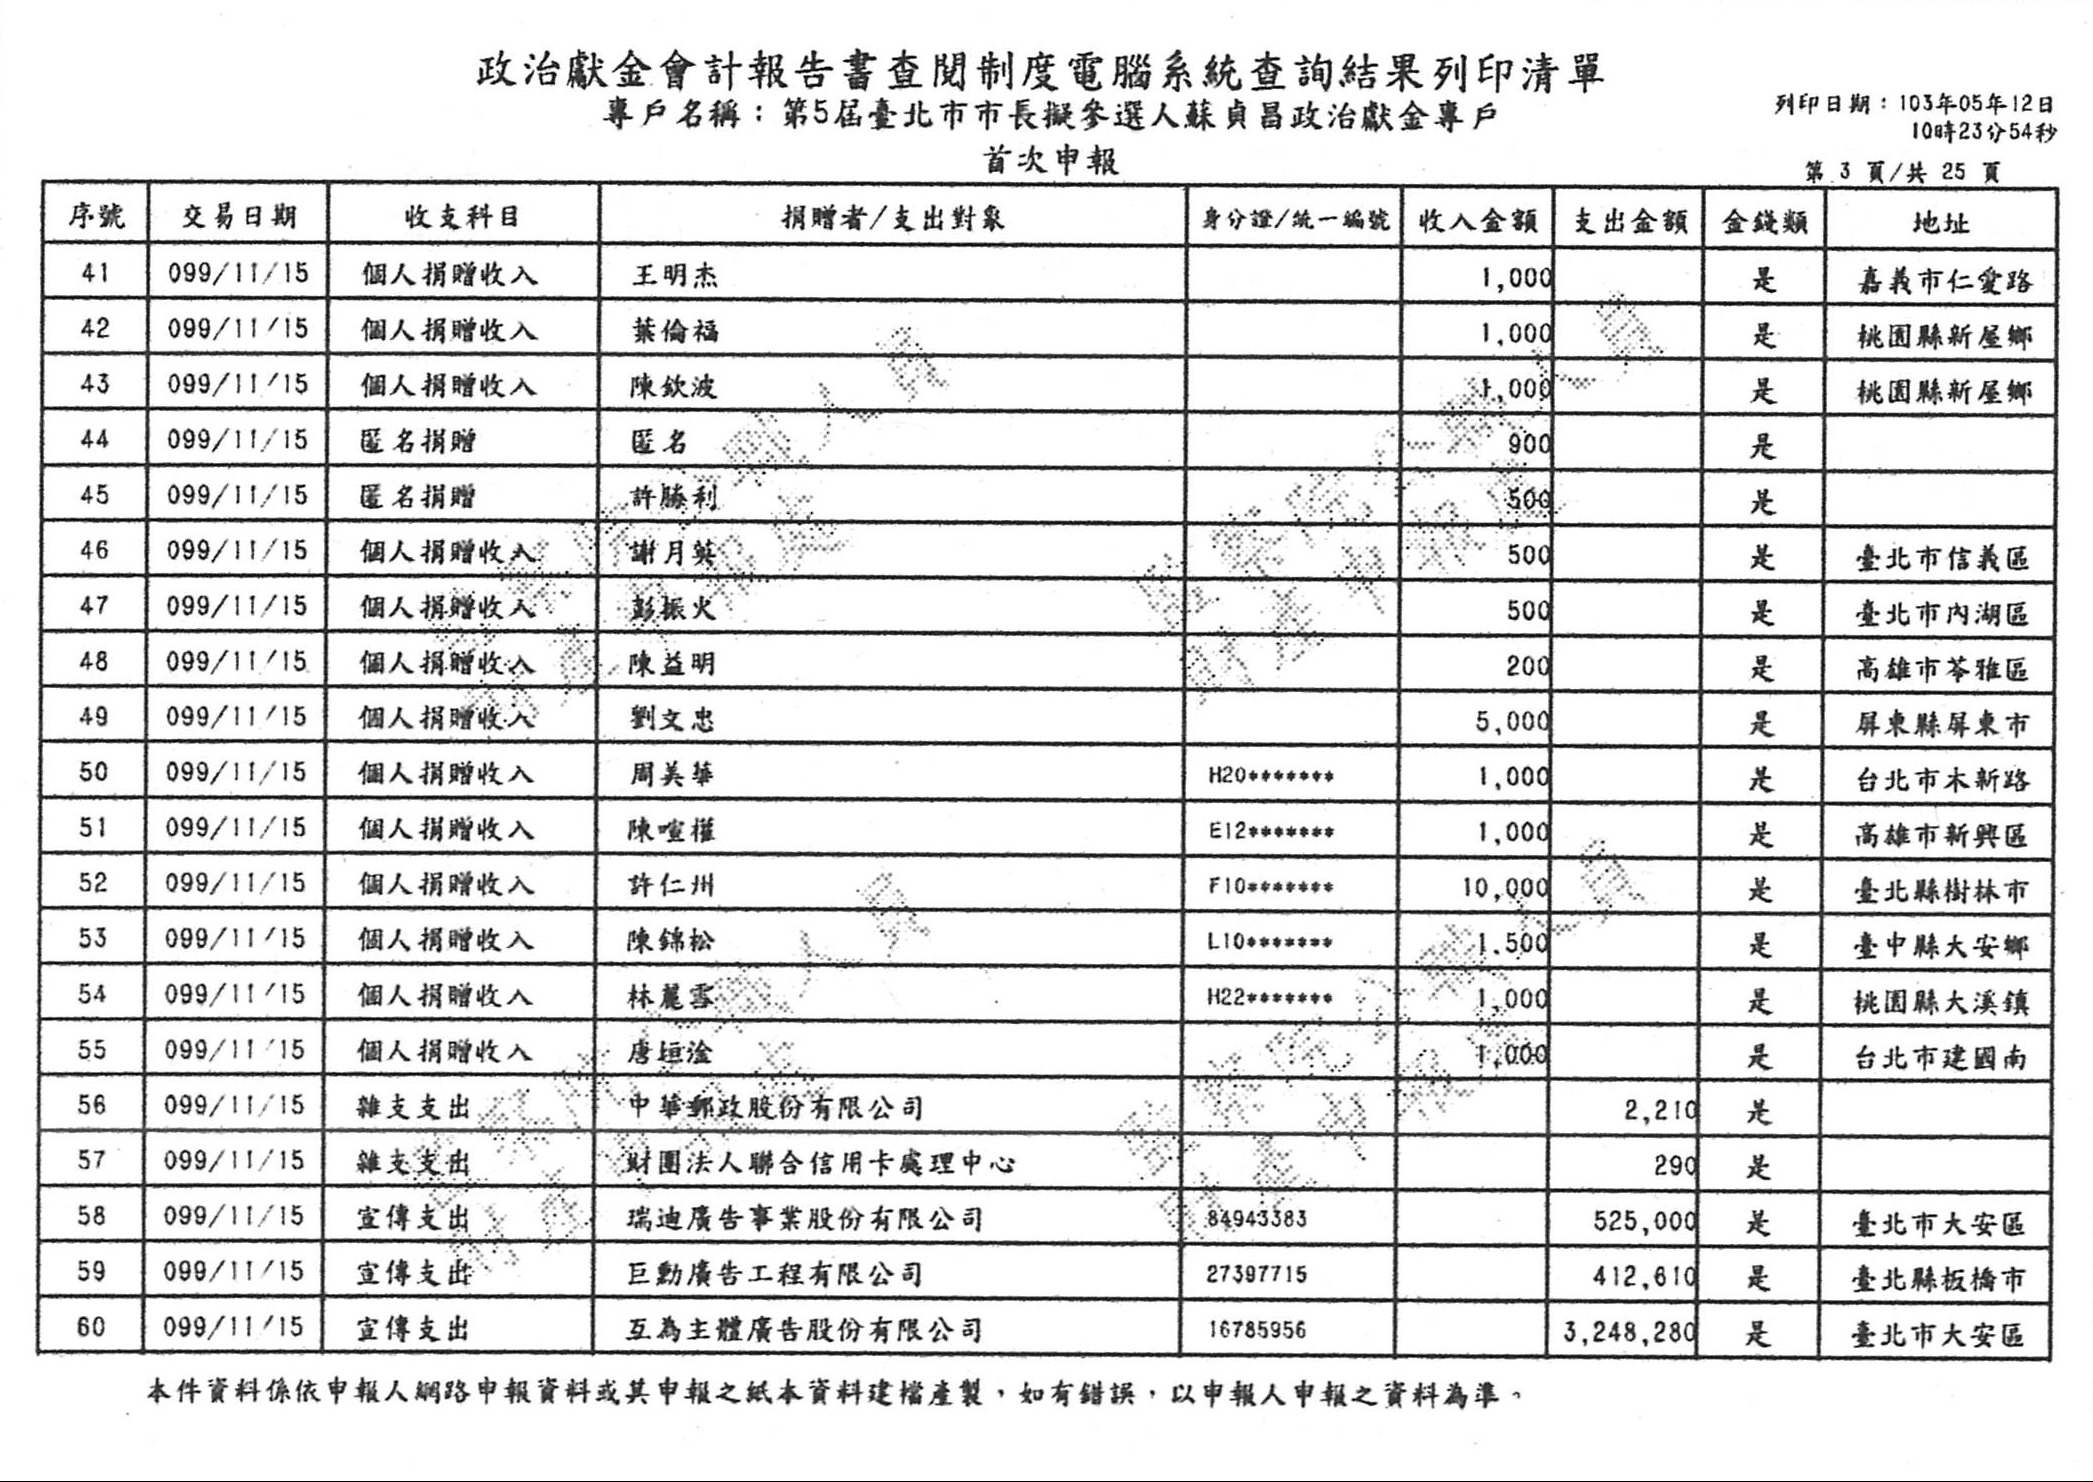 政治獻金會計報告書查閱制度電腦系統查詢結果列印清單
專戶名稱：第5屆臺北市市長擬參選人蘇貞昌政治獻金專戶
列印日期：103年05年12日
10時23分54秒
首次申報
第 3 頁/共 25 頁
序號 交易日期 收支科目 捐贈者/支出對象 身分證/統一編號 收入金額 支出金額 金錢類 地址
41 099/11/15 個人捐贈收入 王明杰 1,000 是 嘉義市仁愛路
42 099/11/15 個人捐贈收入 葉倫福 1,000 是 桃園縣新屋鄉
43 099/11/15 個人捐贈收入 陳欽波 1,000 是 桃園縣新屋鄉
44 099/11/15 匿名捐贈 匿名 900 是
45 099/11/15 匿名捐贈 許勝利 500 是
46 099/11/15 個人捐贈收入 謝月英 500 是 臺北市信義區
47 099/11/15 個人捐贈收入 彭振火 500 是 臺北市內湖區
48 099/11/15 個人捐贈收入 陳益明 200 是 高雄市苓雅區
49 099/11/15 個人捐贈收入 劉文忠 5,000 是 屏東縣屏東市
50 099/11/15 個人捐贈收入 周美華 H20******* 1,000 是 台北市木新路
51 099/11/15 個人捐贈收入 陳喧權 E12******* 1,000 是 高雄市新興區
52 099/11/15 個人捐贈收入 許仁州 F10******* 10,000 是 臺北縣樹林市
53 099/11/15 個人捐贈收入 陳錦松 L10******* 1,500 是 臺中縣大安鄉
54 099/11/15 個人捐贈收入 林麗雪 H22******* 1,000 是 桃園縣大溪鎮
55 099/11/15 個人捐贈收入 唐垣淦 1,000 是 台北市建國南
56 099/11/15 雜支支出 中華郵政股份有限公司 2,210 是
57 099/11/15 雜支支出 財團法人聯合信用卡處理中心 290 是
58 099/11/15 宣傳支出 瑞迪廣告事業股份有限公司 84943383 525,000 是 臺北市大安區
59 099/11/15 宣傳支出 巨勳廣告工程有限公司 27397715 412,610 是 臺北縣板橋市
60 099/11/15 宣傳支出 互為主體廣告股份有限公司 16785956 3,248,280 是 臺北市大安區
本件資料係依申報人網路申報資料或其申報之紙本資料建檔產製，如有錯誤，以申報人申報之資料為準。